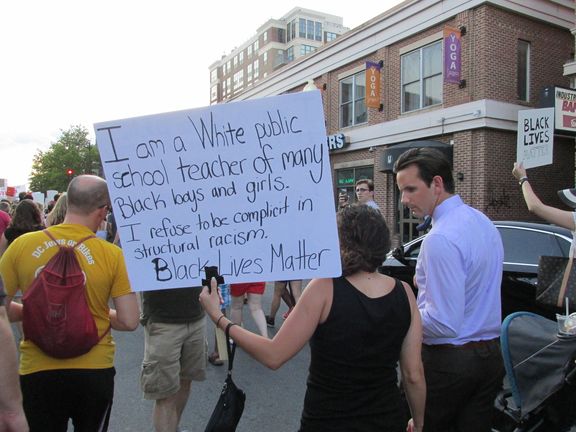 I am a White public
school teacher of many
Black boys and girls.
I refuse to be complicit in
structural racism.
Black Lives Matter
YOGA
YOGA
BLACK
LIVES
MATTER
DC Jews on Bikes